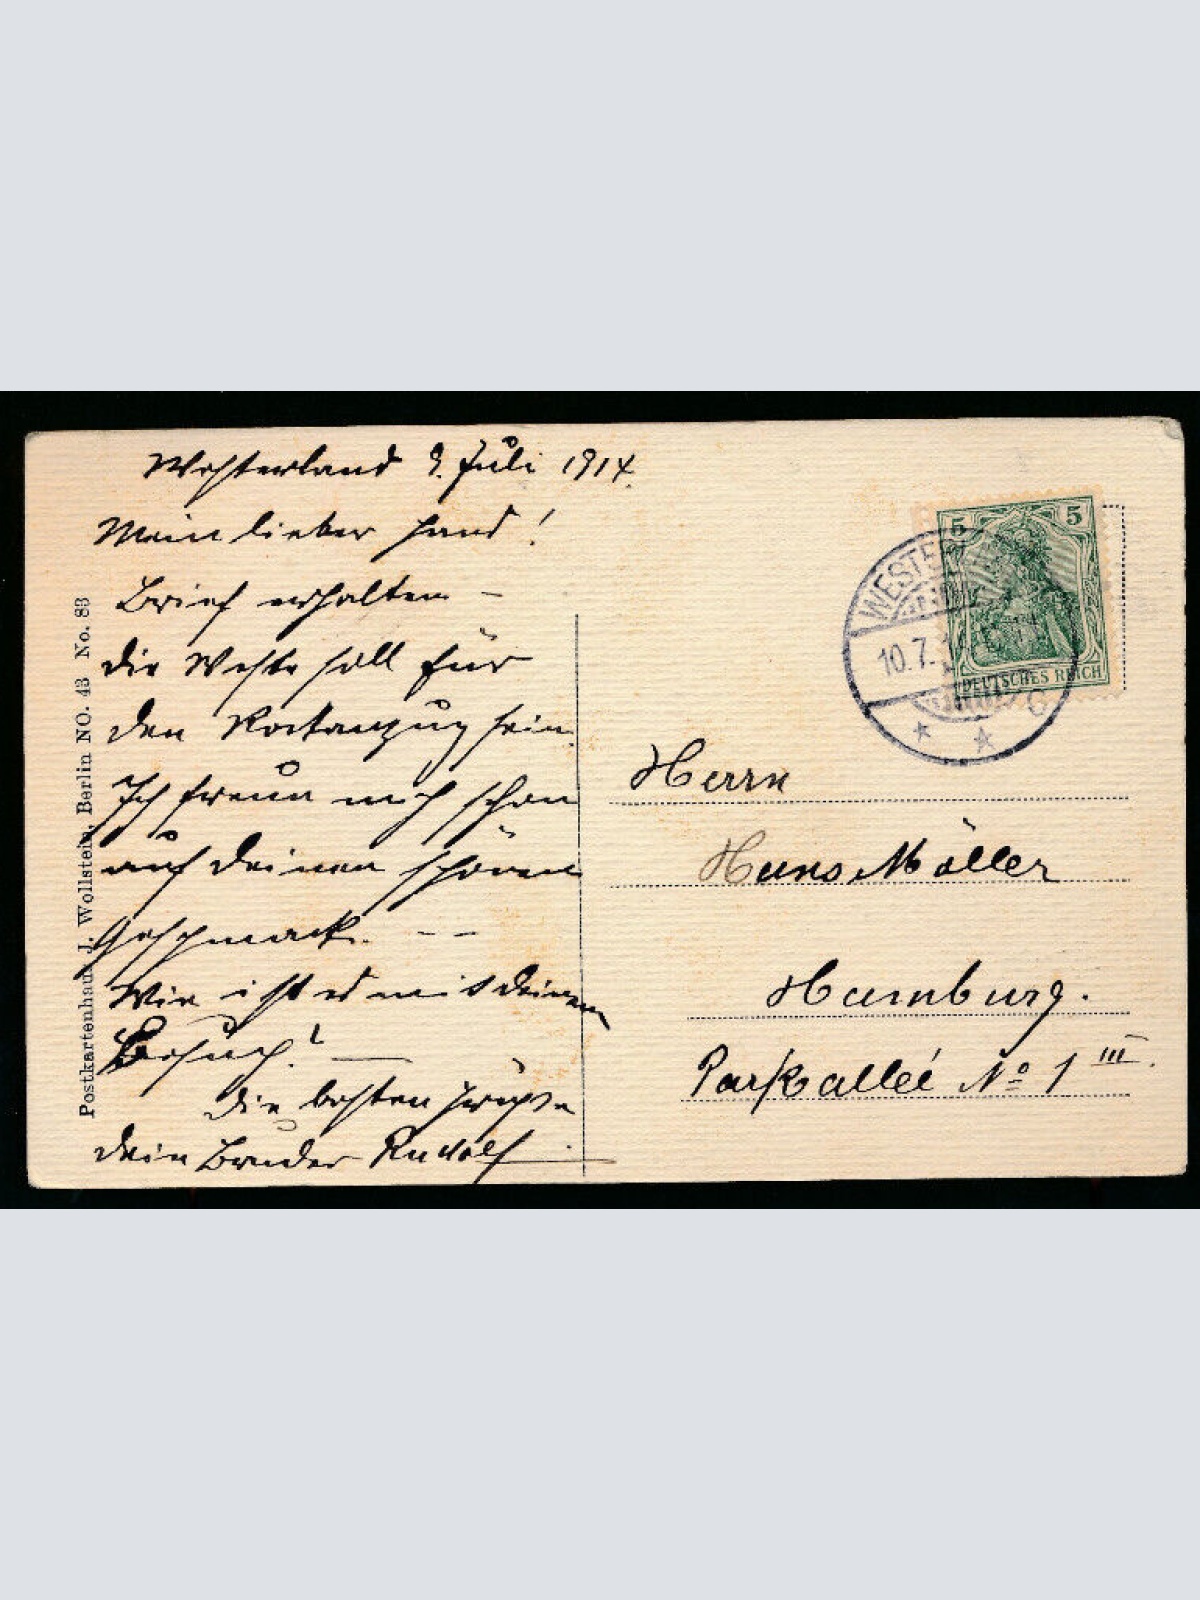 Westerland 9. Juli 1914.
Mein lieber Hans!
Brief erhalten –
die Weste soll für
den Rockanzug sein.
Ich freue mich schon
auf deinen schönen
Geschmack. – –
Wie ist es mit deinem
Besuch? —
Die besten Grüsse
dein Bruder Rudolf
Postkartenhaus J. Wollstein, Berlin NO. 43 No. 83
5 5
DEUTSCHES REICH
10.7.
Herrn
Hans Möller
Hamburg.
Parkalleé No 1 III.